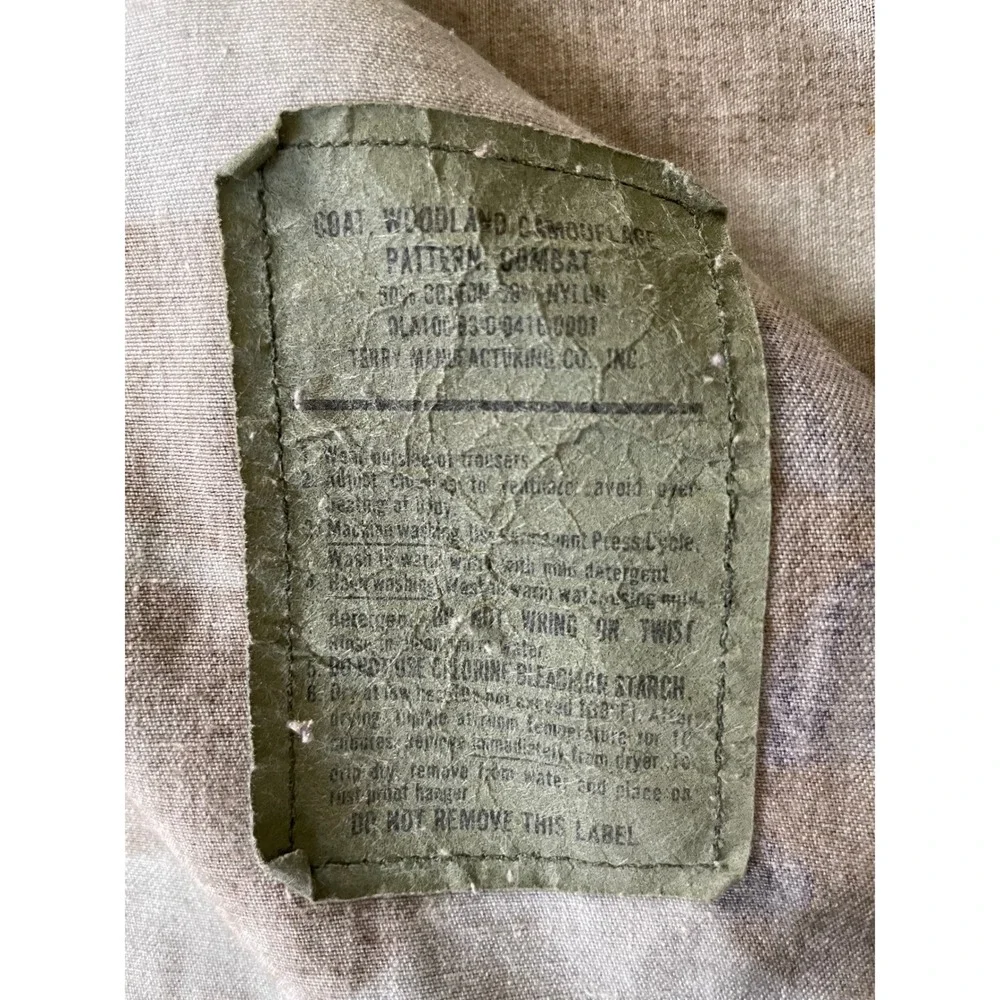 COAT, WOODLAND CAMOUFLAGE
PATTERN: COMBAT
50% COTTON 50% NYLON
DLA100-83-C-0416-0001
TERRY MANUFACTURING CO., INC
1. Wear outside of trousers
2. Adjust to ventilate: avoid over-
heating of body
3. Machine washing. Use Permanent Press Cycle.
Wash in warm water with mild detergent
4. Hand washing. Wash in warm water using mild
detergent. DO NOT WRING OR TWIST
Rinse in clean warm water
5. DO NOT USE CHLORINE BLEACH OR STARCH.
6. Dry at low heat (Do not exceed 130°F). After
drying, tumble at room temperature for 10
minutes, remove immediately from dryer. To
drip dry, remove from water and place on
rust proof hanger
DO NOT REMOVE THIS LABEL